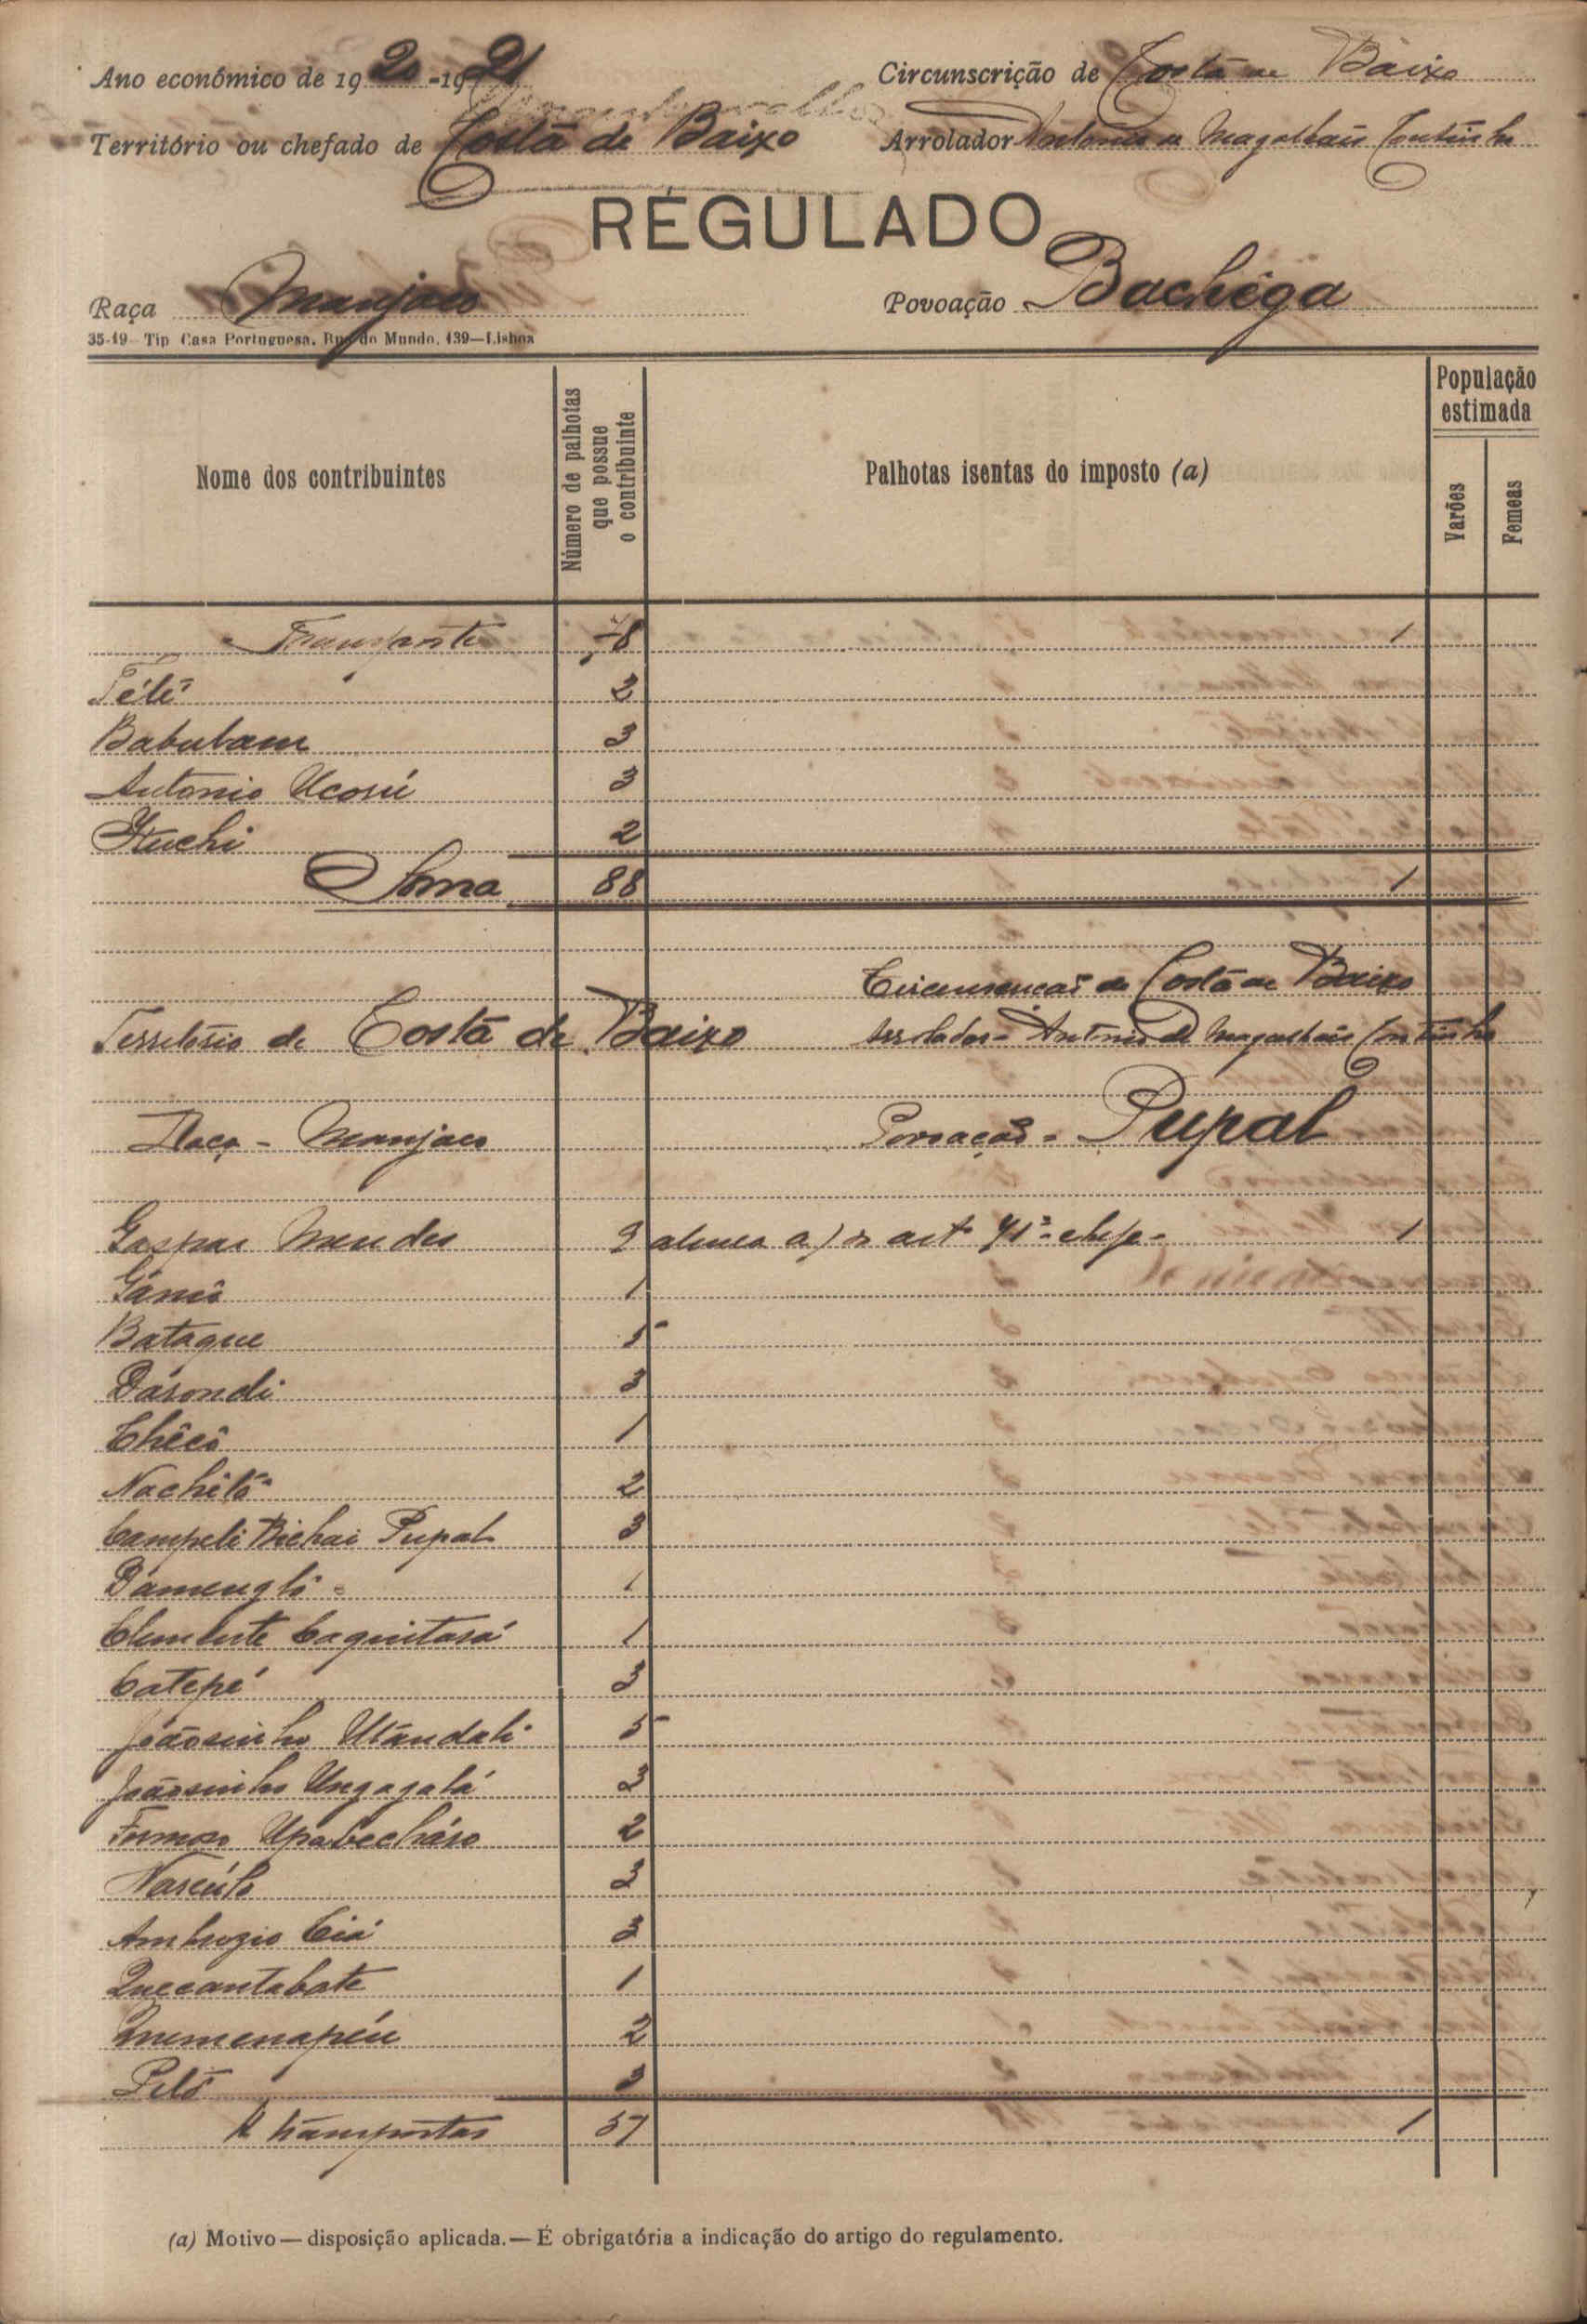 Ano económico de 1920-1921 Circunscrição de Costa de Baixo
Território ou chefado de Costa de Baixo Arrolador Antonio de Magalhães Coutinho
RÉGULADO
Raça Manjaco Povoação Bachéga
35-19- Tip Casa Portuguesa. Rua do Mundo, 139—Lisboa
Nome dos contribuintes
Número de palhotas que possue o contribuinte
Palhotas isentas do imposto (a)
População estimada
Varões
Femeas
Transporte 78 1
Télé 2
Babubam 3
Antonio Ucosú 3
Ituchi 2
Soma 88 1
Circunscrição de Costa de Baixo
Território de Costa de Baixo Arrolador - Antonio de Magalhães Coutinho
Raça - Manjaco Povoação - Pupal
Gaspar Mendes 3 alinea a) do art 41º chefe - 1
Gánió 1
Bataque 5
Dárondi 3
Chêcô 1
Nachitó 2
Campeli Bichai Pupal 3
Dámengló 1
Clemente Caquitasá 1
Catepé 3
Joãosinho Utándali 5
Joãosinho Ungagalá 3
Formoso Upabecháro 2
Narcúlo 3
Ambrozio Ciá 3
Queçantabate 1
Quemenapéu 2
Peló 3
A transportar 57 1
(a) Motivo — disposição aplicada. — É obrigatória a indicação do artigo do regulamento.